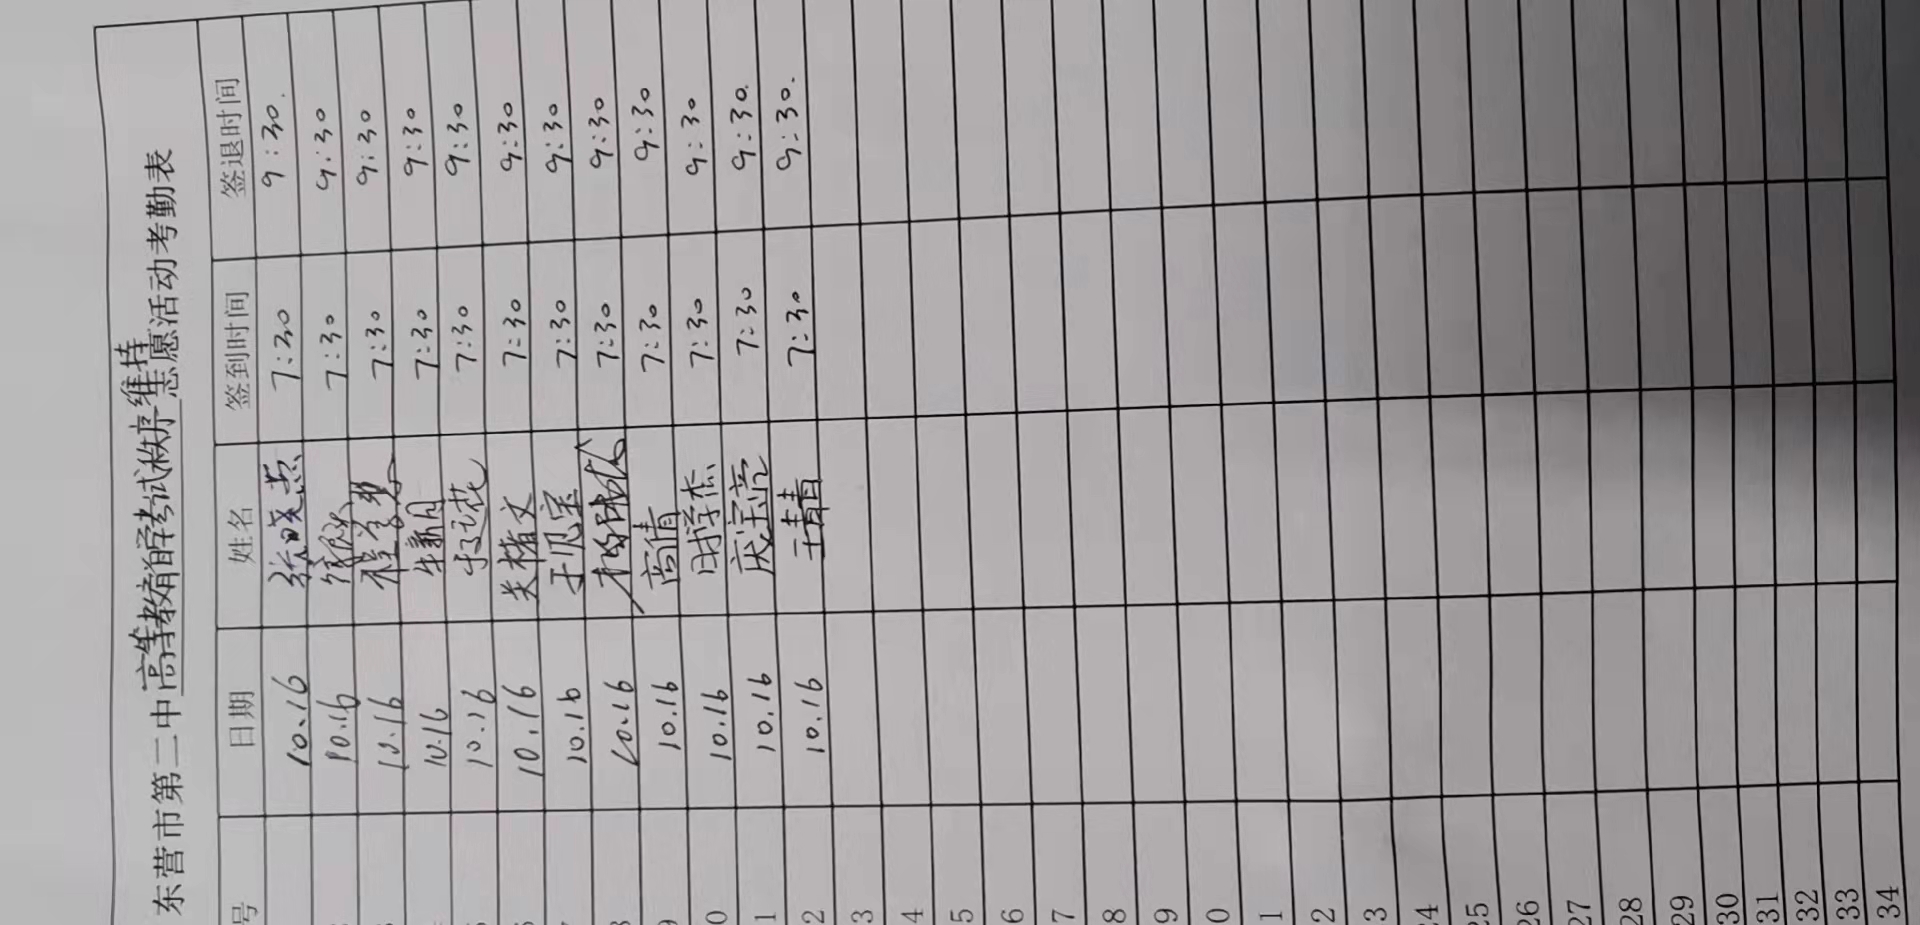 东营市第二中高等教育自学考试秩序维持志愿活动考勤表
号 日期 姓名 签到时间 签退时间
10.16 张晓燕 7:30 9:30.
10.16 7:30 9:30
10.16 7:30 9:30
10.16 7:30 9:30
10.16 7:30 9:30
10.16 7:30 9:30
10.16 于见宝 7:30 9:30
10.16 7:30 9:30
9 10.16 尚倩 7:30 9:30
0 10.16 时学杰 7:30 9:30
1 10.16 7:30 9:30.
2 10.16 王靖 7:30 9:30.
3
4
5
6
7
8
9
0
1
2
3
24
25
26
27
28
29
30
31
32
33
34